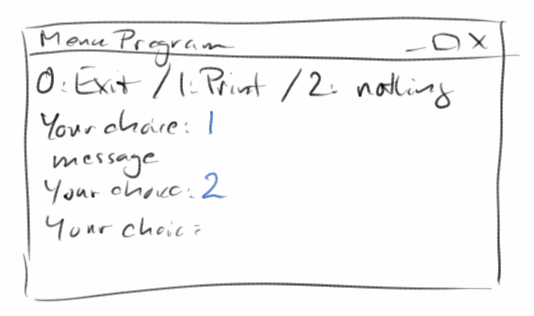 Menu Program
0: Exit / 1: Print / 2: nothing
Your choice: 1
message
Your choice: 2
Your choice: